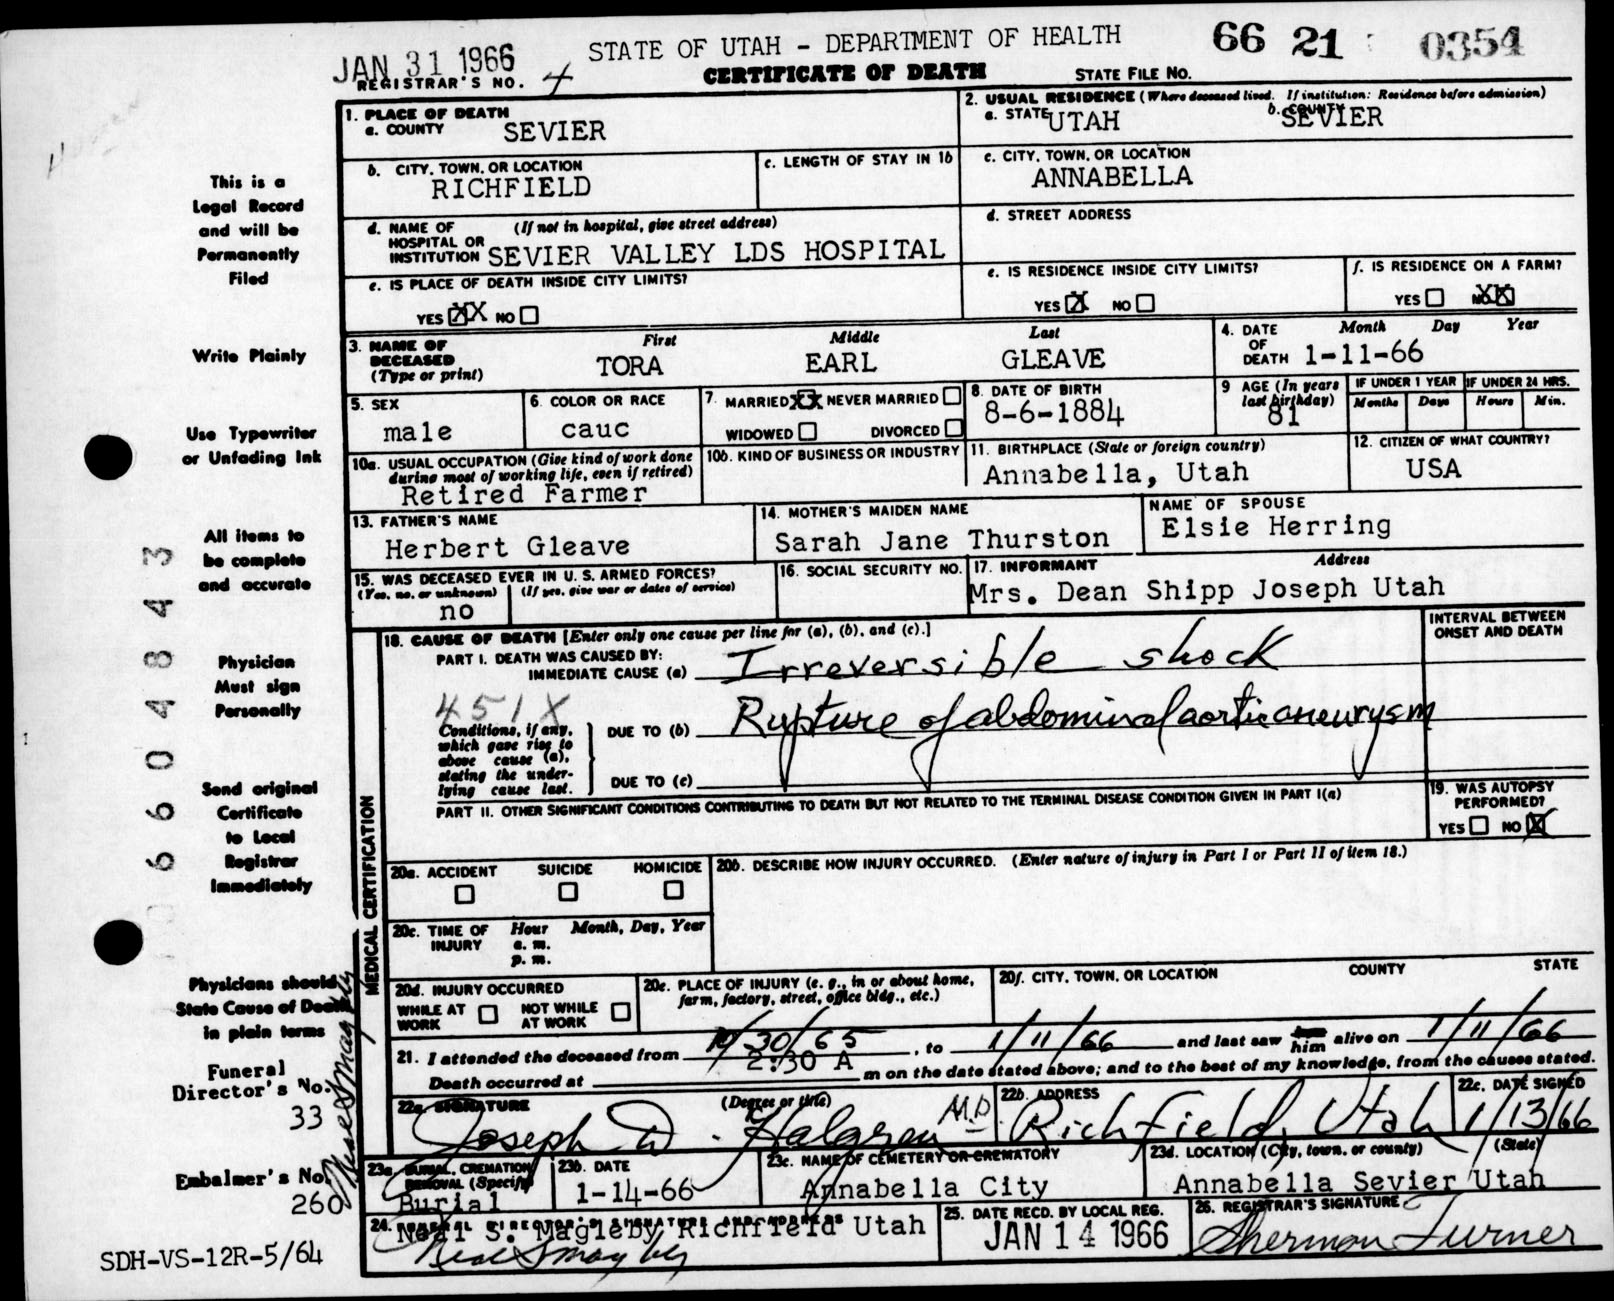 JAN 31 1966
STATE OF UTAH - DEPARTMENT OF HEALTH
66 21 0354
REGISTRAR'S NO. 4
CERTIFICATE OF DEATH
STATE FILE NO.
This is a
Legal Record
and will be
Permanently
Filed
Write Plainly
Use Typewriter
or Unfading Ink
All items to
be complete
and accurate
Physician
Must sign
Personally
Send original
Certificate
to Local
Registrar
Immediately
Physicians should
State Cause of Death
in plain terms
Funeral
Director's No.
33
Embalmer's No.
260
SDH-VS-12R-5/64
6604843
Neal S Magleby
1. PLACE OF DEATH
a. COUNTY SEVIER
2. USUAL RESIDENCE (Where deceased lived. If institution: Residence before admission)
a. STATE UTAH b. COUNTY SEVIER
b. CITY, TOWN, OR LOCATION
RICHFIELD
c. LENGTH OF STAY IN 1b
c. CITY, TOWN, OR LOCATION
ANNABELLA
d. NAME OF HOSPITAL OR INSTITUTION (If not in hospital, give street address)
SEVIER VALLEY LDS HOSPITAL
d. STREET ADDRESS
e. IS PLACE OF DEATH INSIDE CITY LIMITS?
YES XX NO
e. IS RESIDENCE INSIDE CITY LIMITS?
YES X NO
f. IS RESIDENCE ON A FARM?
YES NO XX
3. NAME OF DECEASED (Type or print)
First Middle Last
TORA EARL GLEAVE
4. DATE OF DEATH Month Day Year
1-11-66
5. SEX
male
6. COLOR OR RACE
cauc
7. MARRIED XX NEVER MARRIED
WIDOWED DIVORCED
8. DATE OF BIRTH
8-6-1884
9 AGE (In years last birthday)
81
IF UNDER 1 YEAR IF UNDER 24 HRS.
Months Days Hours Min.
10a. USUAL OCCUPATION (Give kind of work done during most of working life, even if retired)
Retired Farmer
10b. KIND OF BUSINESS OR INDUSTRY
11. BIRTHPLACE (State or foreign country)
Annabella, Utah
12. CITIZEN OF WHAT COUNTRY?
USA
13. FATHER'S NAME
Herbert Gleave
14. MOTHER'S MAIDEN NAME
Sarah Jane Thurston
NAME OF SPOUSE
Elsie Herring
15. WAS DECEASED EVER IN U. S. ARMED FORCES?
(Yes, no, or unknown) (If yes, give war or dates of service)
no
16. SOCIAL SECURITY NO.
17. INFORMANT Address
Mrs. Dean Shipp Joseph Utah
MEDICAL CERTIFICATION
18. CAUSE OF DEATH [Enter only one cause per line for (a), (b), and (c).]
INTERVAL BETWEEN ONSET AND DEATH
PART I. DEATH WAS CAUSED BY:
IMMEDIATE CAUSE (a) Irreversible shock
451X
Conditions, if any, which gave rise to above cause (a), stating the underlying cause last.
DUE TO (b) Rupture of abdominal aortic aneurysm
DUE TO (c)
PART II. OTHER SIGNIFICANT CONDITIONS CONTRIBUTING TO DEATH BUT NOT RELATED TO THE TERMINAL DISEASE CONDITION GIVEN IN PART I(a)
19. WAS AUTOPSY PERFORMED?
YES NO X
20a. ACCIDENT SUICIDE HOMICIDE
20b. DESCRIBE HOW INJURY OCCURRED. (Enter nature of injury in Part I or Part II of item 18.)
20c. TIME OF INJURY Hour Month, Day, Year
a. m.
p. m.
20d. INJURY OCCURRED
WHILE AT WORK NOT WHILE AT WORK
20e. PLACE OF INJURY (e. g., in or about home, farm, factory, street, office bldg., etc.)
20f. CITY, TOWN, OR LOCATION COUNTY STATE
21. I attended the deceased from 10/30/65, to 1/11/66 and last saw him alive on 1/11/66
Death occurred at 2:30 A m on the date stated above; and to the best of my knowledge, from the causes stated.
22a. SIGNATURE (Degree or title)
Joseph W. Halgren M.D.
22b. ADDRESS
Richfield, Utah
22c. DATE SIGNED
1/13/66
23a. BURIAL, CREMATION REMOVAL (Specify)
Burial
23b. DATE
1-14-66
23c. NAME OF CEMETERY OR CREMATORY
Annabella City
23d. LOCATION (City, town, or county) (State)
Annabella Sevier Utah
24. FUNERAL DIRECTOR'S SIGNATURE AND ADDRESS
Neal S. Magleby Richfield Utah
Neal S Magleby
25. DATE RECD. BY LOCAL REG.
JAN 14 1966
26. REGISTRAR'S SIGNATURE
Sherman Turner